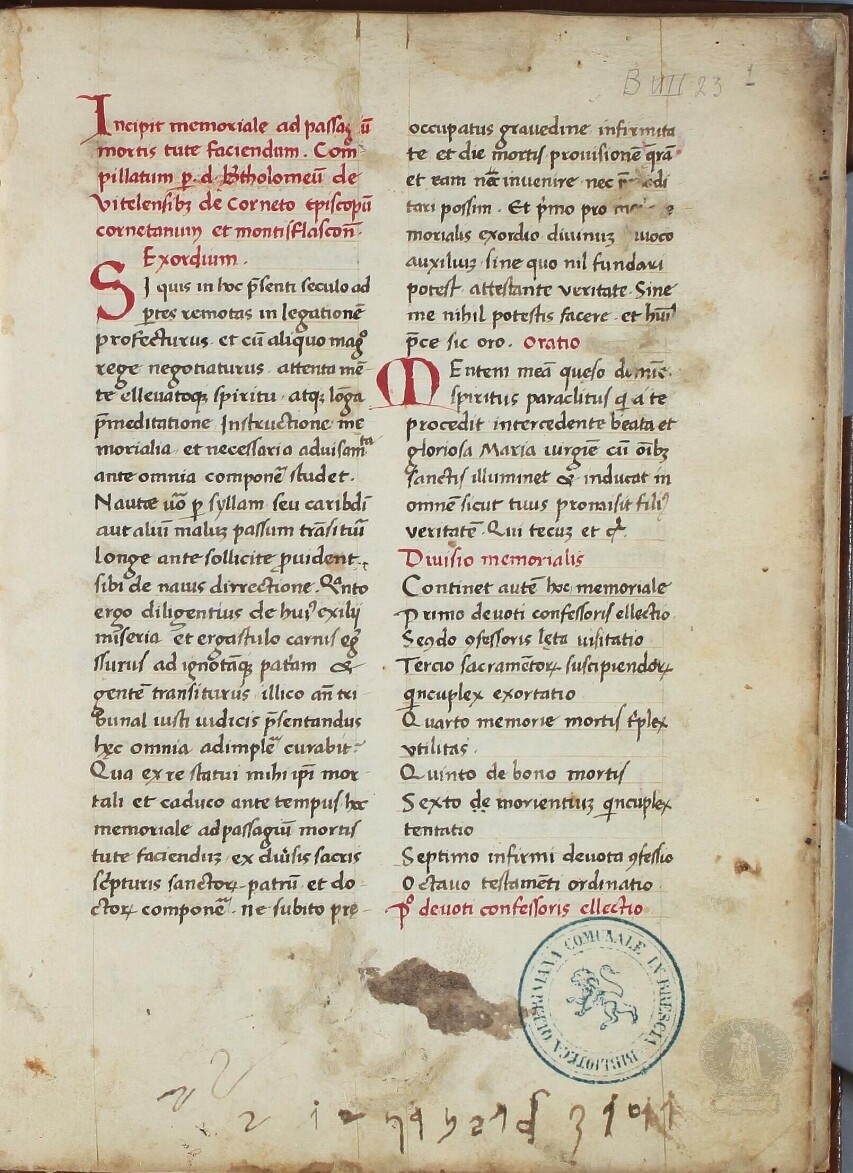 B VII 23 1
Incipit memoriale ad passagiū
mortis tute faciendum. Com
pillatum p. d. Btholomeū de
Vitelensibꝫ de Corneto Episcopū
cornetanum et montisflascoñ.
Exordium.
SI quis in hoc p̄senti seculo ad
ꝑtes remotas in legationē
profecturus. et cū aliquo mago
rege negotiaturus. attenta mē-
te elleuatoqꝫ spiritu. atqꝫ lōga
p̄meditatione. Instructione. me
morialia. et necessaria aduisamta
ante omnia componē studet.
Nautæ uo ꝑ syllam. seu caribdī
aut aliū maluꝫ passum trāsitui
longe ante sollicite ꝓuident.
sibi de nauis dirrectione. Qanto
ergo diligentius de huiꝰ exilij
miseria et ergastulo carnis eg
ssurus ad ignotāqꝫ patām &
gentē transiturus. illico añ tri
bunal iusti iudicis p̄sentandus
hęc omnia adimplē curabit
Qua ex re statui mihi ip̄i mor
tali et caduco ante tempus hoc
memoriale ad passagiū mortis
tute facienduꝫ ex diuisis sacris
scpturis sanctoꝝ patrū et do
ctoꝝ componē. ne subito pre-
occupatus grauedine infirmita
te et die mortis prouisionē qrā
et eam nēc inuenire nec
tari possim. Et p̄mo pro
morialis exordio diuinuꝫ inuoco
auxiliuꝫ. sine quo nil fundari
potest. attestante veritate. Sine
me nihil potestis facere. et huīl
p̄ce sic oro. Oratio
MEntem meā queso dnīe.
spiritus paraclitus q a te
procedit intercedente beata et
gloriosa Maria uirgie cū oībꝫ
sanctis illuminet & inducat in
omnē sicut tuus promisit filiꝰ
veritatē. Qui tecuꝫ et c̄.
Diuisio memorialis
Continet autē hoc memoriale
Primo deuoti confessoris ellectio.
Seqdo ꝯfessoris lęta uisitatio
Tercio sacramētoꝝ suscipiendoꝝ
qncuplex exortatio
Quarto memorie mortis tplex
vtilitas.
Quinto de bono mortis
Sexto de morientiuꝫ qncuplex
tentatio
Septimo infirmi deuota ꝯfessio
Octauo testamēti ordinatio.
Po deuoti confessoris ellectio
BIBLIOTECA QUERINIANA COMUNALE IN BRESCIA